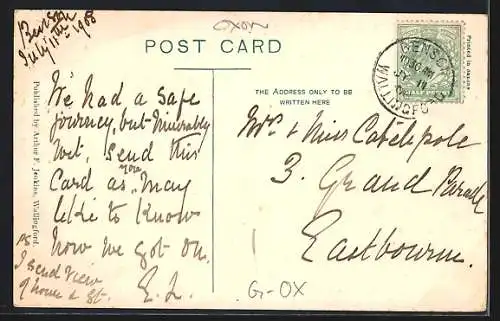 Benson
July 11th 1908
Oxon
POST CARD
THE ADDRESS ONLY TO BE
WRITTEN HERE
We had a safe
journey, but Miserably
Wet, send this
Card as you May
like to Know
how we got on.
E. L.
PS
I send View
of house & St.
Mrs & Miss Catchpole
3. Grand Parade
Eastbourne.
G-OX
BENSON
11 30 AM
JY 11
WALLINGFORD
HALF PENNY
Printed in
Published by Arthur F. Jenkins, Wallingford.